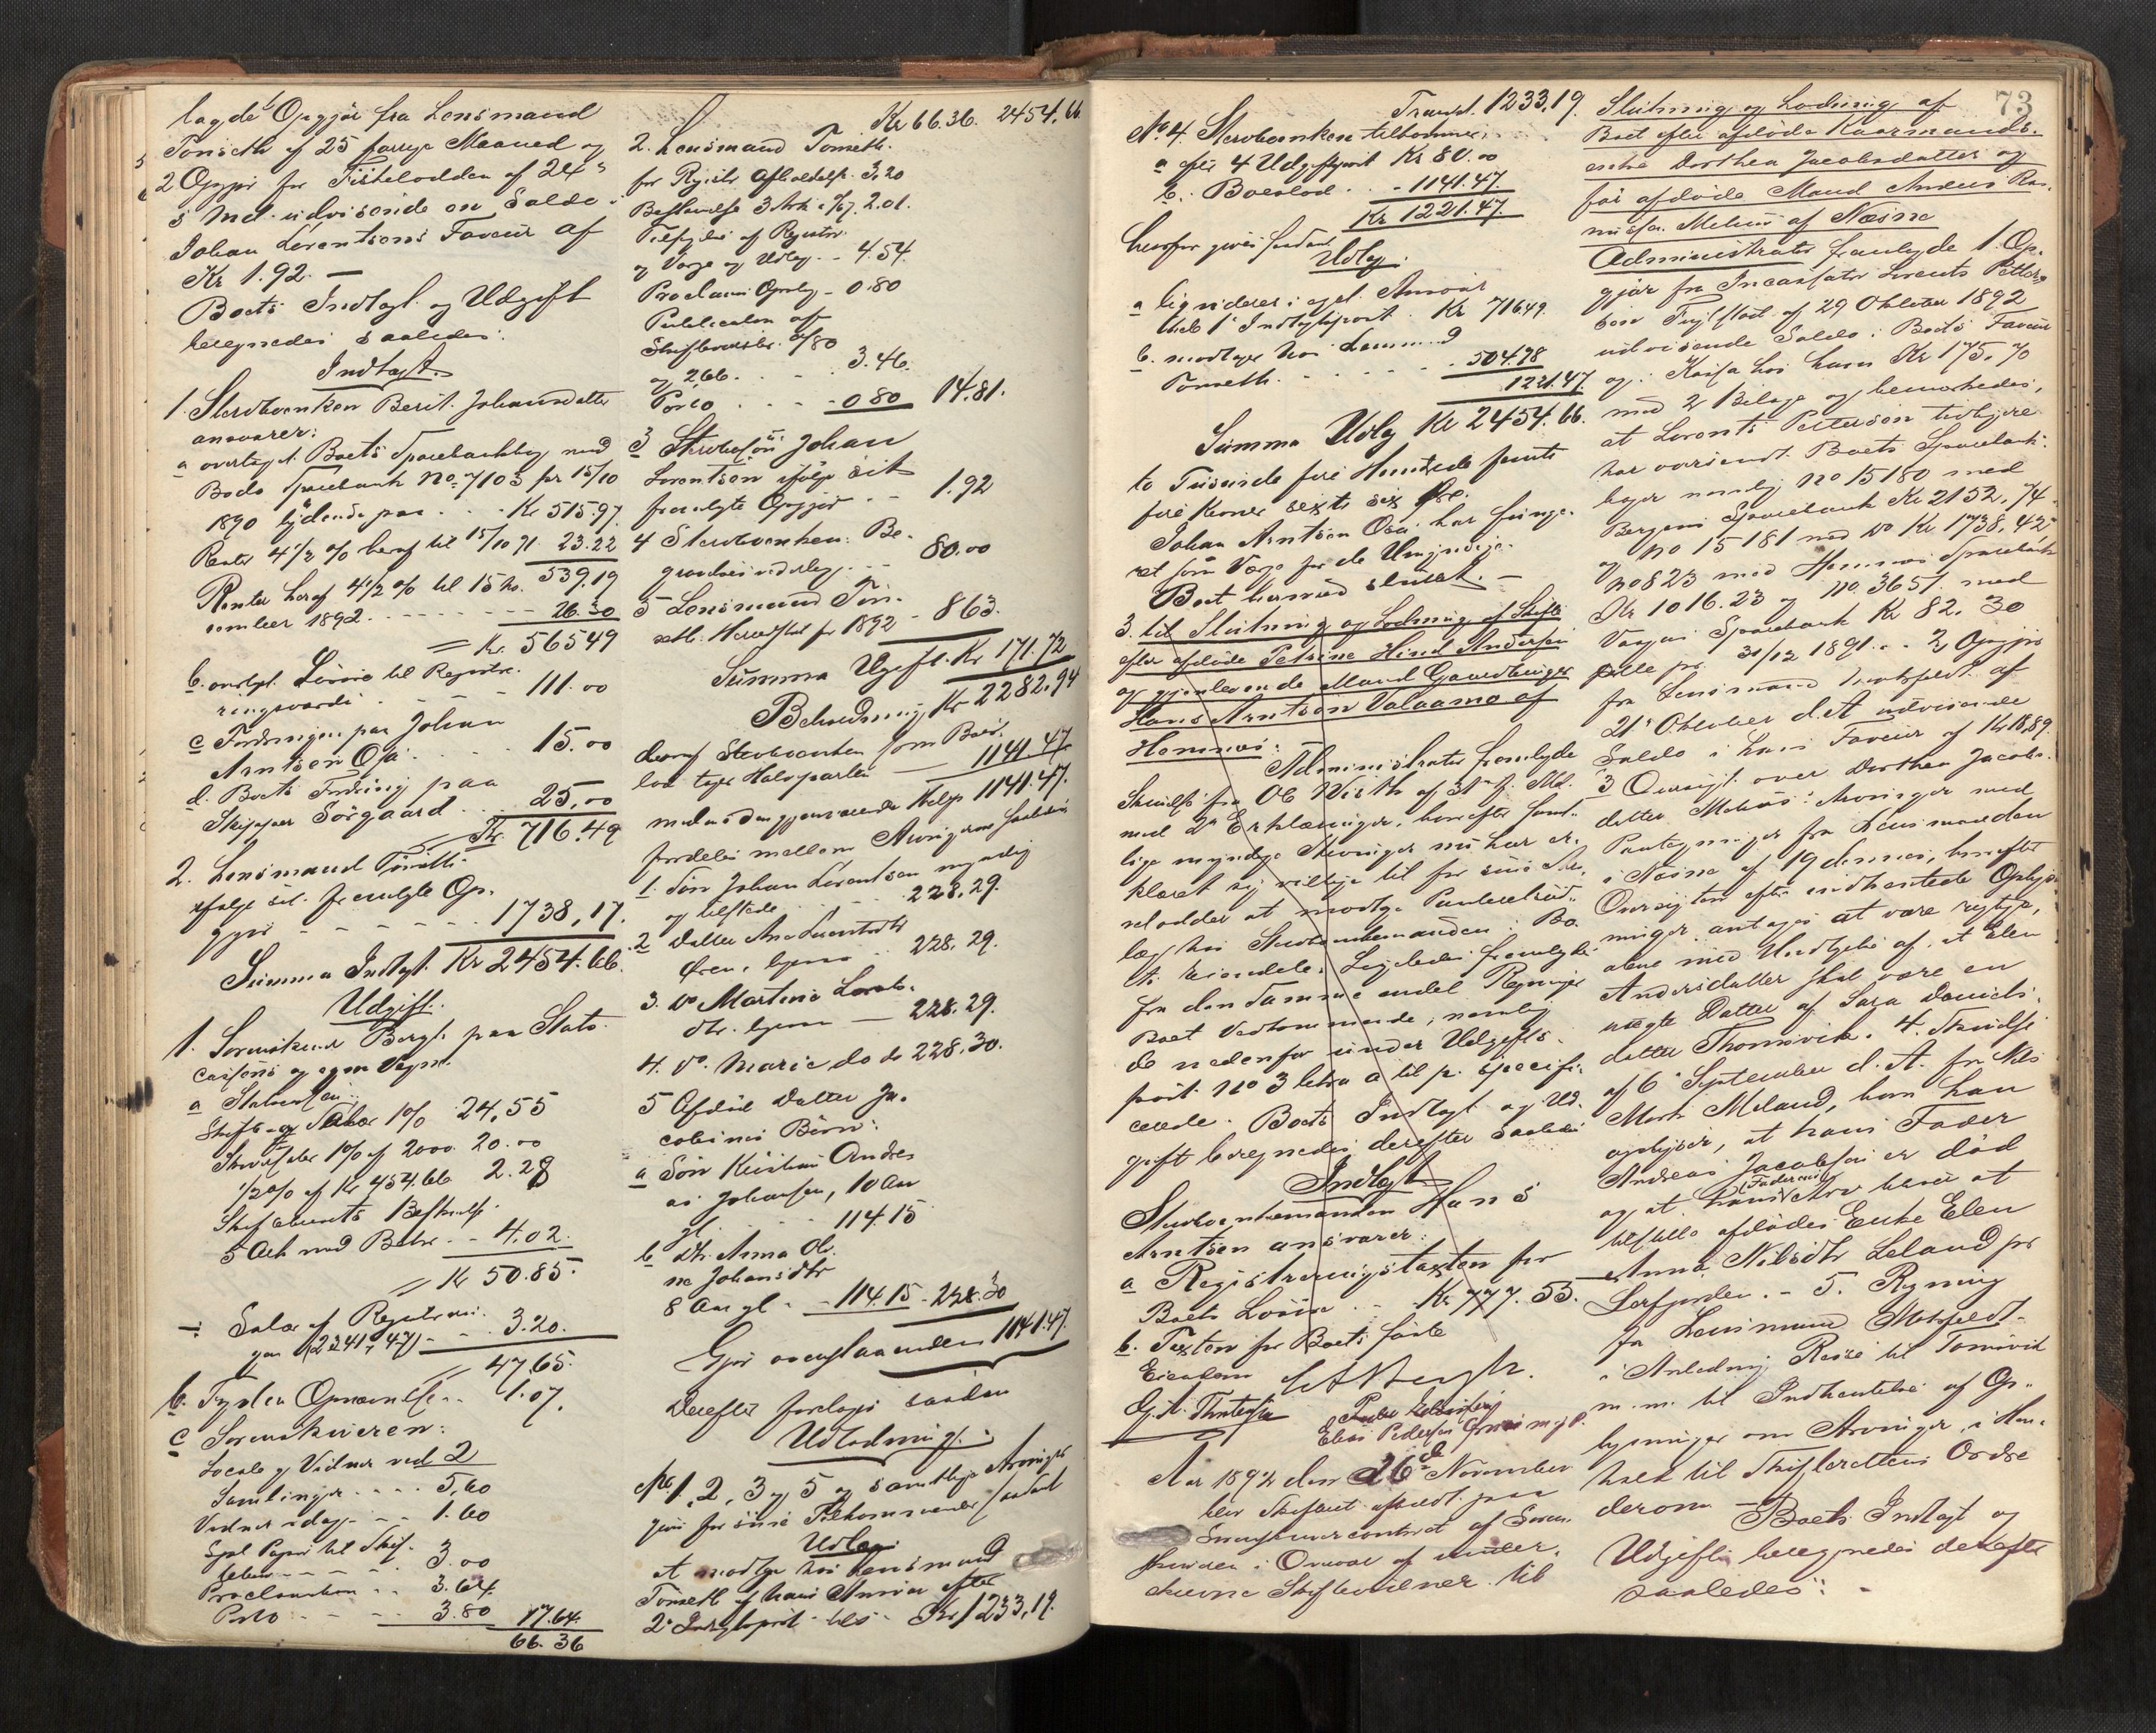 lagde 1 Opgjör fra Lensmand
Tonseth af 25 forrige Maaned og
2 Opgjör for Fiskelodden af 24
s Md. udvisende en Saldo i
Johan Lorentsens Faveur af
Kr 1.92. —
Boets Indtægt og Udgift
beregnedes saaledes:
Indtægt.
1. Stervboenken Berit Johansdatter
ansvarer:
a overtaget Boets Sparebankbog med
Bodø Sparebank No. 7103 pr 15/10
1890 lydende paa - - - Kr 515.97
Renter 4 1/2 % heraf til 15/10 91. 23.22
539.19
Renter heraf 4 1/2 % til 15 No-
vember 1892 - - - - 26.30
= Kr. 565.49
b. overtagt. Løsøre til Registre-
ringsværdi - - - 111.00
c Fordringen paa Johan
Arntsen Osa - - - 15.00
d. Boets Fordring paa
Skipper Sörgaard - - 25.00
= Kr. 716.49
2. Lensmand Tonseth
ifølge sit fremlagte Op-
gjör - - - - - 1738,17.
Summa Indtægt Kr 2454.66.
Udgift.
1. Sorenskriver Bergh paa Stats-
cassens og egne Vegne.
a Statscassen:
Skifte- og 1 % 24,55
1 % af 2000. 20.00
1/2 % af Kr 454.66 2.28
Skiftebrevets Beskrivelse
5 Ark med - - 4.02.
= Kr 50.85.
÷ Salær af Registrerin-
gen (2341,47) - - 3.20.
= 47.65.
b. Opnævnelse - - 1.07.
c Sorenskriveren:
Locale og Vidner ved 2
Samlinger - - - - 5,60
Vidner idag - - - 1.60
Spl. Papir til Skif-
- - - - 3.00
Proclamation - - 3.64
Porto - - - - 3.80 17.64
66.36
Kr 66.36. 2454.66
2. Lensmand Tonseth.
for Registr Afholdelse 3.20
Beskrivelse 3 Ark a /67. 2.01.
af Registr.
og Vurd og Udlæg - - 4.54.
Proclama Opslag - 0.80
Publication af
/80
og 2,66. - - - 3.46.
Porto - - - - 0.80 14.81.
3 Stervbosön Johan
Lorentsen ifølge sit
fremlagte Opgjör - - 1.92
4 Stervboenken: Be-
gravelsesvederlag - - 80.00
5 Lensmand Ton-
seth: for 1892 - 8 63.
Summa Udgift. Kr 171.72
Beholdning Kr 2282.94
deraf Stervboenken som Boes-
lod tager Halvparten — 1141.47
medens den gjenværende Halvp. 1141.47.
fordeles mellem Arvingerne saaledes
1. Sön Johan Lorentsen myndig
og tilstede - - - 228.29.
2 Datter Ane Lorentsdtr
Øren, hjemme - 228.29.
3. do Martine Lorents-
dtr. hjemme — 228.29.
4. do. Marie do do 228.30.
5 Afdöd Datter Ja-
cobines Börn:
a Sön Kristian Andre-
as Johansen, 10 Aar
gl. - - - 114.15
b dtr. Anna Oli-
ne Johansdtr
8 Aar gl. - - 114.15 - 228.30
Gjör ovenstaaende 1141.47.
Derefter foretages saadan
Udlodning:
No 1, 2, 3 og 5 og samtlige Arvinger
gives for sine Tilkommender saadant
Udlæg:
at modtage hos Lensmand
Tonseth af hans Ansvar efter
2 Indtægtspost - bls - Kr 1233,19.
Transp. 1233.19.
No 4. Stervboenken tilkommer.
a efter 4 Udgiftspost Kr 80.00
b. Boeslod - - 1141.47.
Kr 1221.47.
hvorfor gives saadant
Udlæg.
a liqviderer i eget Ansvar
ved 1 Indtægtspost. Kr 716.49.
b. modtager hos Lensmand
Tonseth - - - - - 504.98
1221.47.
Summa Udlæg Kr 2454.66.
to Tusinde fire Hundrede femti
fire Kroner sexti sex Øre.
Johan Arntsen Osa har funge-
ret som Værge for de Umyndige.
Boet hermed sluttet. —
3. til Slutning og Lodning af Skifte
efter afdöde Petrine Hind Andersen
og gjenlevende Mand Gaardbruger
Hans Arntsen Valaamo af
Hemnes:
Administrator fremlagde
Skrivelse fra OC Wirth af 31 f. Md.
med 2 Erklæringer, hvorefter samt-
lige myndige Arvinger nu har er-
klæret sig villige til for sine Ar-
velodder at modtage Panteudlæg-
læg hos Stervboenkemanden i Bo-
ets Eiendele. Ligeledes fremlagdes
fra den Samme endel Regninger
Boet Vedkommende, nemlig
de nedenfor under Udgifts-
post No 3 litra a til p. specifi-
cerede. Boets Indtægt og Ud-
gift beregnedes derefter saaledes
Indtægt
Stervboenkemanden Hans
Arntsen ansvarer:
a Registreringstaxten for
Boets Løsöre - - Kr 777.55.
b. Taxten for Boets faste
Eiendom
Aar 1892 den 26de November
blev Skifteret afholdt paa
Sorenskrivercontoret af Soren-
skriveren i Overvær af under-
skrevne Skiftevidner til
73
Slutning og Lodning af
Boet efter afdöde Kaarmands-
enke Dorthea Jacobsdatter og
för afdöde Mand Anders Ras-
mussen Melum af Næsne
Administrator fremlagde 1 Op-
gjör fra Incassator Lorents Petter-
sen af 29 Oktober 1892
udvisende Saldo i Boets Faveur
og i Kassa hos ham Kr 175.70
med 2 Bilage og bemærkedes,
at Lorents Pettersen tidligere
har oversendt Boets Sparebank-
böger nemlig No 15180 med
Bergens Sparebank Kr 2152,74
og No 15181 med do Kr 1738,42
No 823 med Hemnes Sparebank
Kr 1016.23 og No. 3651 med
Vaagens Sparebank Kr 82.30
alle pr. 31/12 1891. - 2 Opgjör
fra Lensmand af
21 Oktober d.A. udvisende
Saldo i hans Faveur af Kr 18,89.
3 Oversigt over Dorthea Jacobs-
datter Melums Arvinger med
Paategninger fra Lensmanden
i Næsne af 19 dennes, hvorefter
Oversigten efter indhentede Oplys-
ninger antages at være rigtig,
alene med Undtagelse af at Elen
Andersdatter skal være en
uægte Datter af Sara Daniels-
datter Thomsvik. 4. Skrivelse
af 6 September d. A. fra Nils
Mork Meland, hvori han
oplyser, at hans Fader
Andreas Jacobsen er död
og at hans (Faderens) Arv bliver at
tilstille afdödes Enke Elen
Anna Nilsdtr Leland pr
Leirfjorden. - 5. Regning
fra Lensmand
i Anledning Reise til Tomsvik
m.m. til Indhentelse af Op-
lysninger om Arvinger, i Hen-
hold til Skifterettens Ordre
derom — Boets Indtægt og
Udgifter beregnedes derefter
saaledes: -